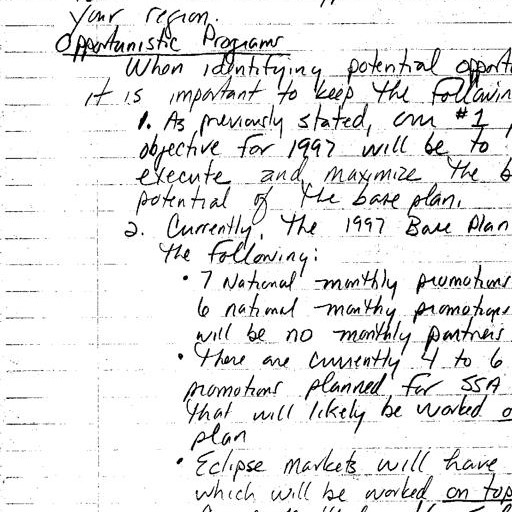 your region.
Opportunistic Programs
When identifying potential opport
it is important to keep the followin
1. As previously stated, our #1
objective for 1997 will be to
execute and maximize the b
potential of the base plan.
2. Currently, the 1997 Base Plan
the following:
• 7 National monthly promotions
6 national monthy promotions
will be no monthly partners
• There are currently 4 to 6
promotions planned for SSA
that will likely be worked o
plan
• Eclipse markets will have
which will be worked on top